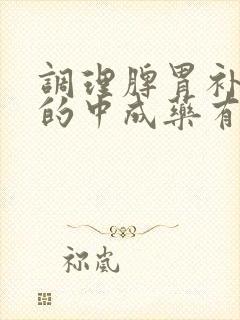 調理脾胃补
的中成藥有
祢嵐